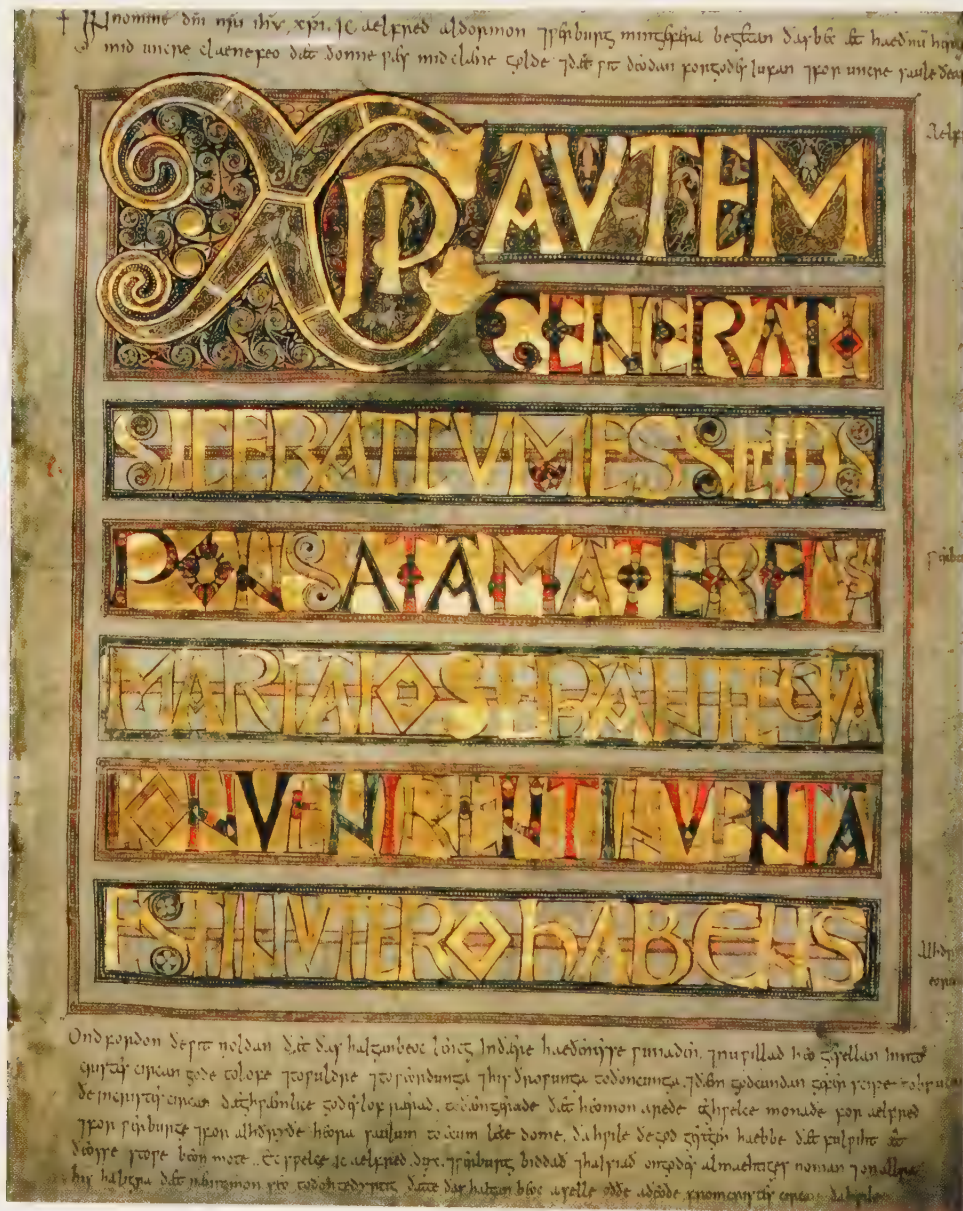 + In nomine dni nri ihu. xpi. Ic aelfred aldormon 7 ƿerburg min gefera begetan ðas bec æt haeðnu
mid uncre claene feo ðæt ðonne ƿæs mid claene golde 7 ðæt ƿit deodan for godes lufan 7 for uncre saule
XPI AVTEM
GENERATIO
SIC ERAT CVM ESSET DIS
PONSATA MATER EIVS
MARIA IOSEP ANTEQVA
CONVENIRENT INVENTA
EST IN VTERO hABENS
Ond forðon ðe ƿit noldan ðæt ðas halgan beoc lencg in ðære haeðenesse ƿunaden. 7 nu ƿillað heo gesellan inn to
cristes circan gode to lofe 7 to ƿuldre 7 to ƿeorðunga 7 his ðroƿunga to ðoncunga. 7 ðæm godcundan geferscipe
ðe in cristes circan dæghƿæmlice godes lof rærað. to ðæm gerade ðæt heo mon arede eghƿelce monaðe for aelfred
7 for ƿerburge 7 for alhðryðe heora saulum to ecum lecedome. ða hƿile ðe god gesegen haebbe ðæt fulƿiht æt
ðeosse stoƿe beon mote. Ec sƿelce ic aelfred. dux. 7 ƿerburg biddað 7 halsiað on godes almaehtiges noman 7 on allra
his haligra ðæt nænig mon seo to ðon gedyrstig ðætte ðas halgan beoc aselle oððe aðeode from cristes circan ða hƿile